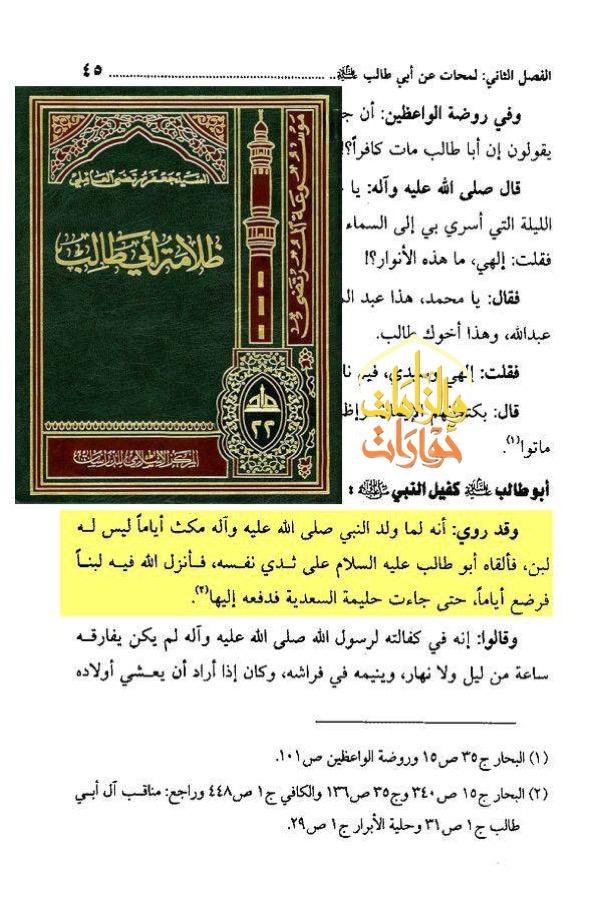 الفصل الثاني: لمحات عن أبي طالب ﷺ .. ٤٥
وفي روضة الواعظين: أن
يقولون إن أبا طالب مات كافراً؟!
قال صلى الله عليه وآله: يا
الليلة التي أسري بي إلى السماء
فقلت: إلهي، ما هذه الأنوار؟!
فقال: يا محمد، هذا عبد
عبدالله، وهذا أخوك طالب.
فقلت: إلهي وسيدي،
قال:
ماتوا(١).
السيد جعفر مرتضى العاملي
ظلامة أبي طالب
٢٢
المركز الإسلامي للدراسات
أبو طالب كفيل النبي :
وقد روي: أنه لما ولد النبي صلى الله عليه وآله مكث أياماً ليس له
لبن، فألقاه أبو طالب عليه السلام على ثدي نفسه، فأنزل الله فيه لبناً
فرضع أياماً، حتى جاءت حليمة السعدية فدفعه إليها(٢).
وقالوا: إنه في كفالته لرسول الله صلى الله عليه وآله لم يكن يفارقه
ساعة من ليل ولا نهار، وينيمه في فراشه، وكان إذا أراد أن يعشي أولاده
(١) البحار ج٣٥ ص١٥ وروضة الواعظين ص١٠١.
(٢) البحار ج١٥ ص٣٤٠ وج٣٥ ص١٣٦ والكافي ج١ ص٤٤٨ وراجع: مناقب آل أبي
طالب ج١ ص٣١ وحلية الأبرار ج١ ص٢٩.